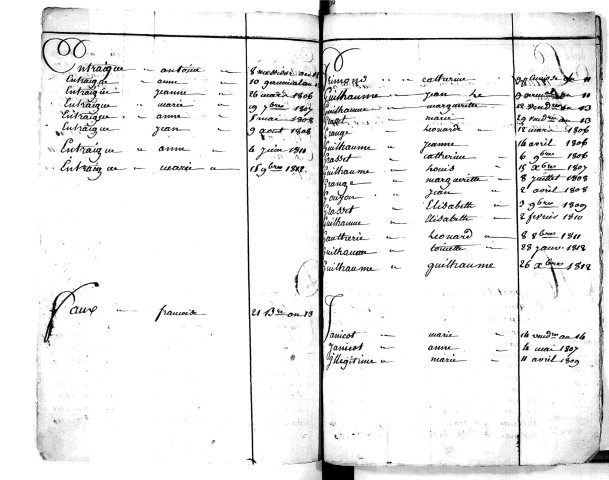 Entraigue " antoine " 8 messidor an
Entraigue " anne " 10 germinal an
Entraigue " jeanne " 26 mars 1806
Entraigue " marie " 19 7bre 1807
Entraigue " anne " 1 mai 1808
Entraigue " jean " 9 aout 1808
Entraigue " anne " 6 juin 1811
Entraigue " marie " 15 9bre 1812
Faux " francoise 21 an 13
catherine " an 11
Guilhaume " jean
Guilhaume " marguerite " an 13
marie " an 13
Grange " Léonarde " 1806
Guilhaume " jeanne " 16 avril 1806
Grasset " catherine " 6 9bre 1806
Guilhaume " Louis 15 Xbre 1807
Grange " marguerite " 8 juillet 1808
jean " 2 avril 1808
Grasset " Elisabeth " 3 9bre 1809
Guilhaume " Elisabeth " 2 fevrier 1810
Léonard " 8 8bre 1811
Guilhaume " toinette " 28 janv. 1812
Guilhaume " guilhaume 26 Xbre 1812
Janicot " marie " 14 vendre an 14
Janicot " anne " 4 mai 1807
Illegitime " marie " 11 avril 1809